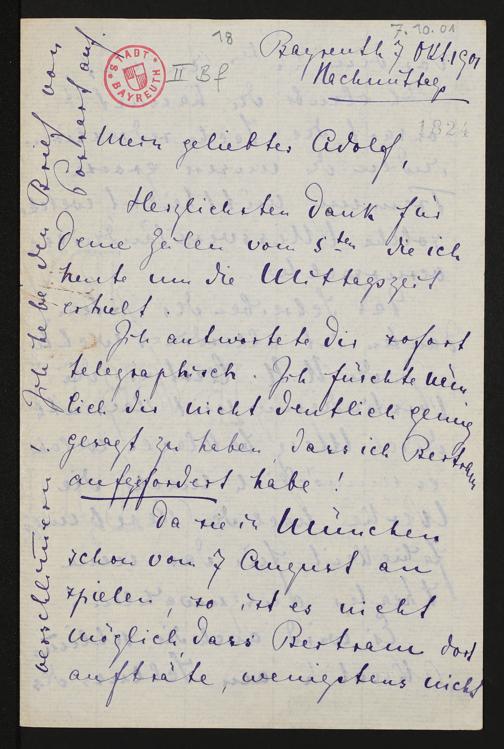 7.10.01
18
STADT BAYREUTH
II Bf
Bayreuth 7 Okt. 1901
Nachmittag
1824
Mein geliebter Adolf,
Herzlichsten Dank für
Deine Zeilen vom 5ten die ich
heute um die Mittagszeit
erhielt.
Ich antwortete Dir sofort
telegraphisch. Ich fürchte näm
lich dir nicht deutlich genug
gesagt zu haben, dass ich Bertram
aufgefordert habe!
Da sie in München
schon vom 7 August an
spielen, so ist es nicht
möglich, dass Bertram dort
aufträte, wenigstens nicht
verschlimmern! Ich hebe den Brief von
Possart auf.